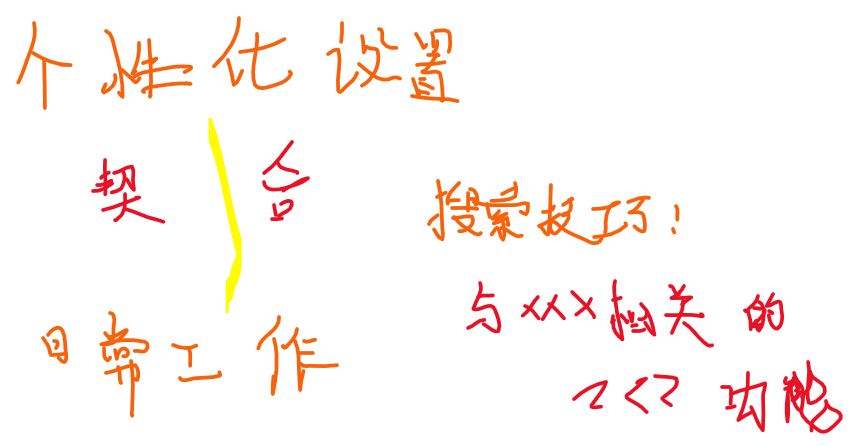 个性化设置
契合
日常工作
搜索技巧!
与XXX相关的
功能